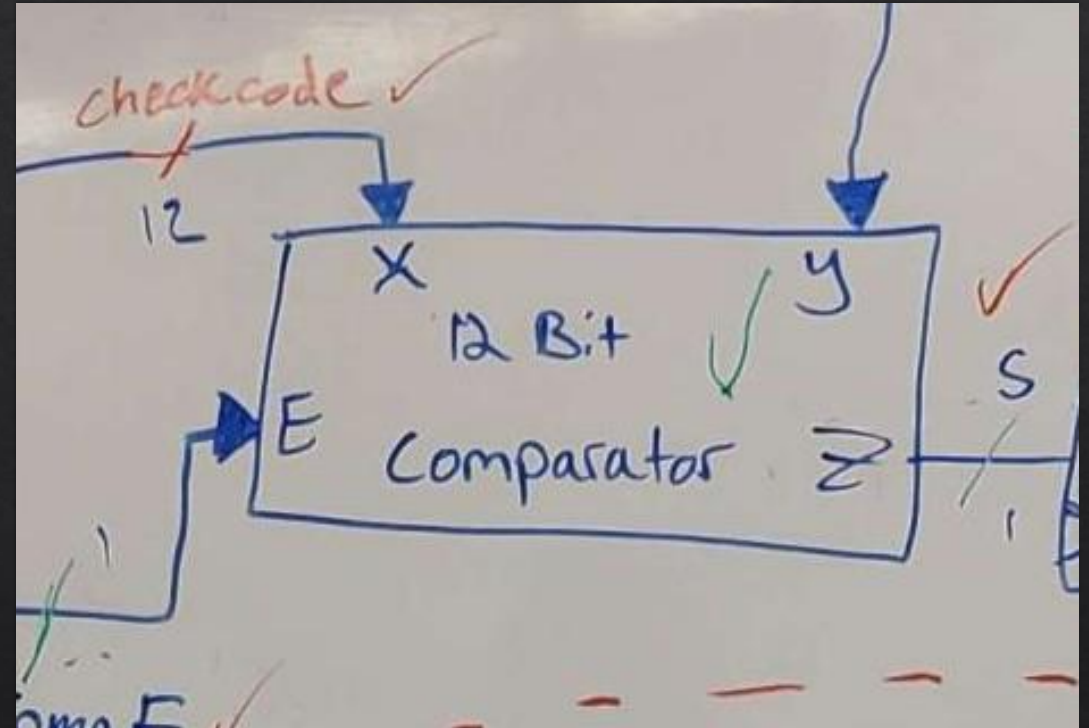 checkcode
12
X
y
12 Bit
S
E
Comparator
Z
1
1
E